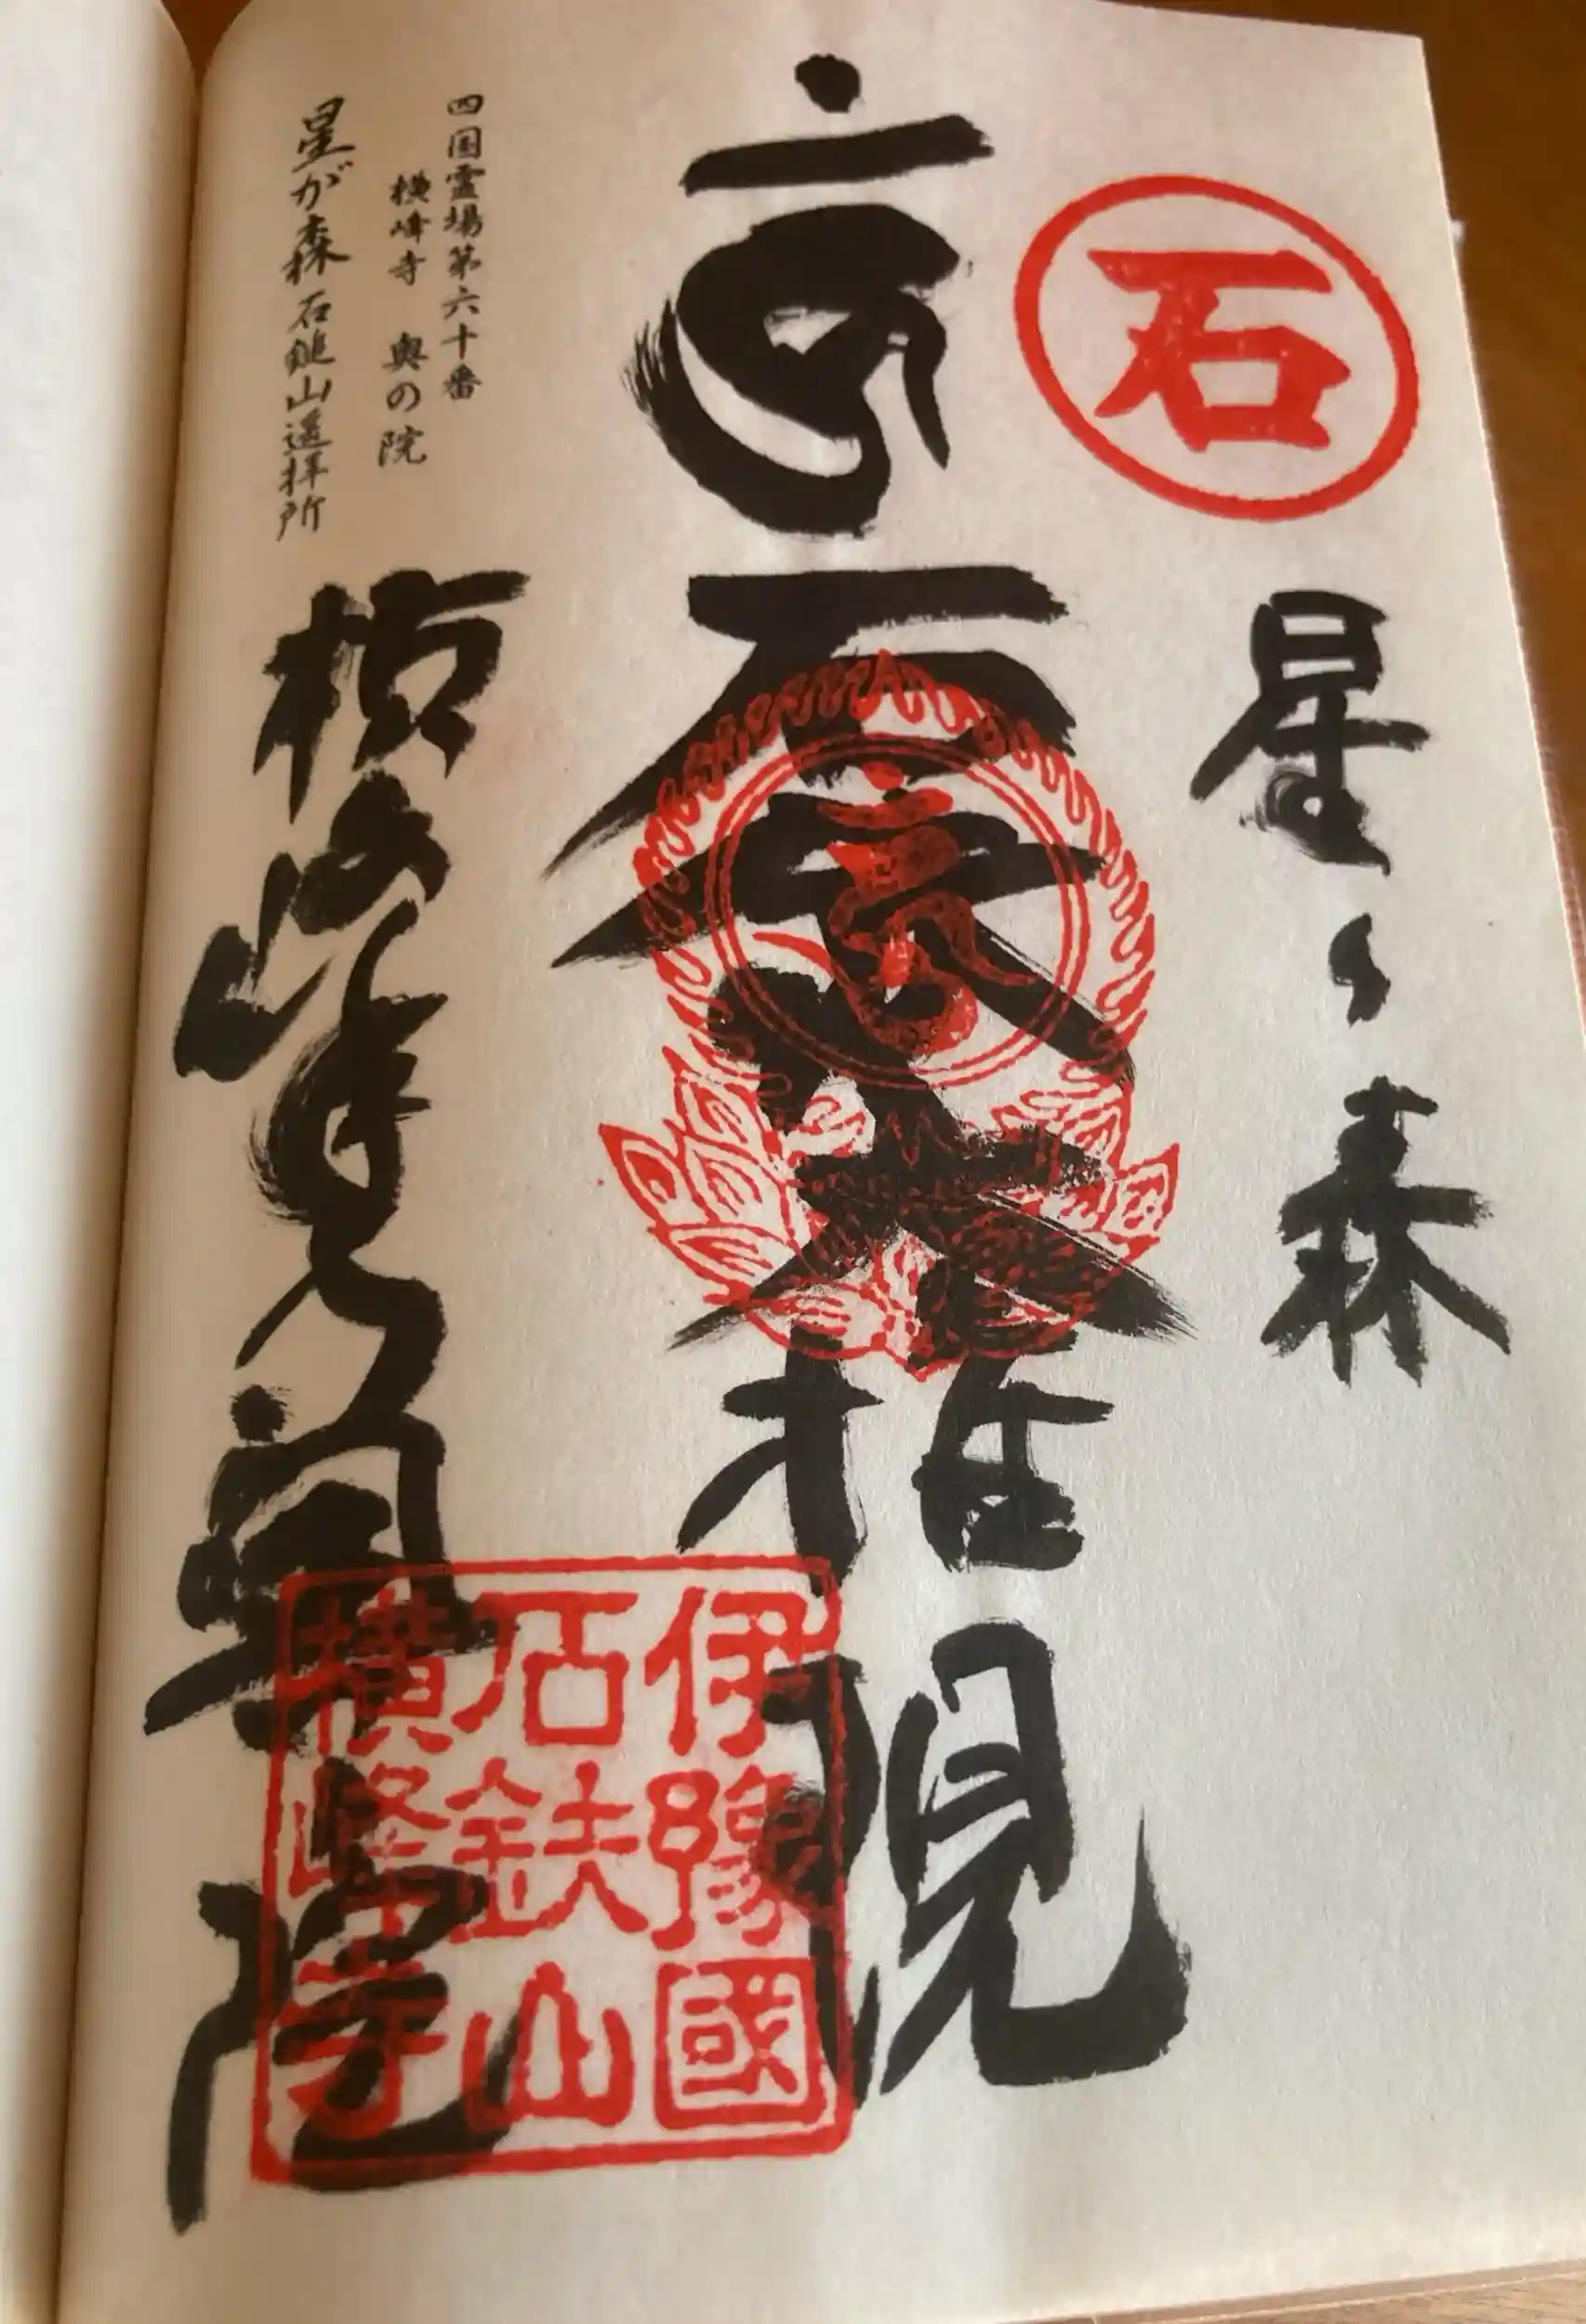 石
星ヶ森
蔵大権現
四国霊場第六十番
横峰寺 奥の院
星が森 石鎚山遥拝所
横峰寺奥院
伊豫國
石鈇山
横峰寺